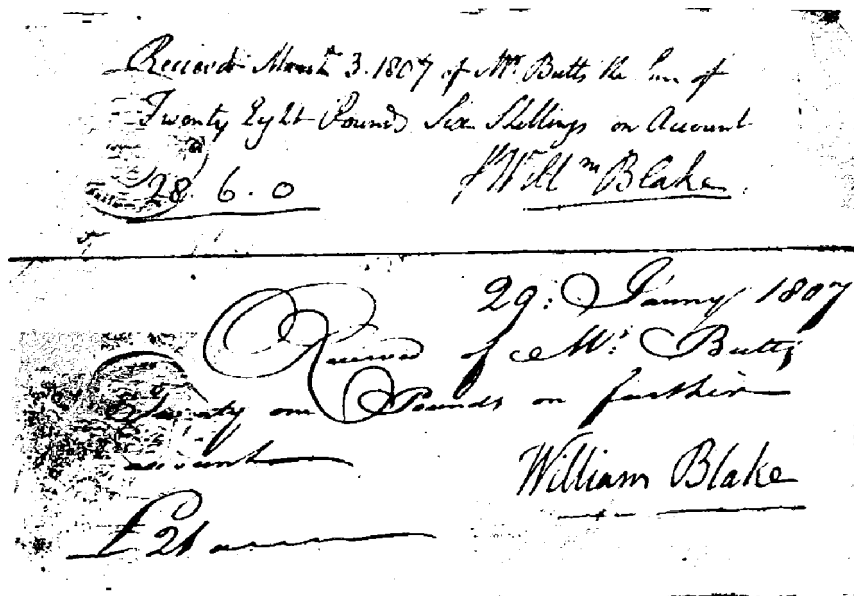 Recievd March 3. 1807 of Mr. Butts the Sum of
Twenty Eight Pounds Six Shillings on Account
28. 6. 0 Willm Blake
29: Janry 1807
Received of Mr: Butts
Twenty one Pounds on further
account
William Blake
£21